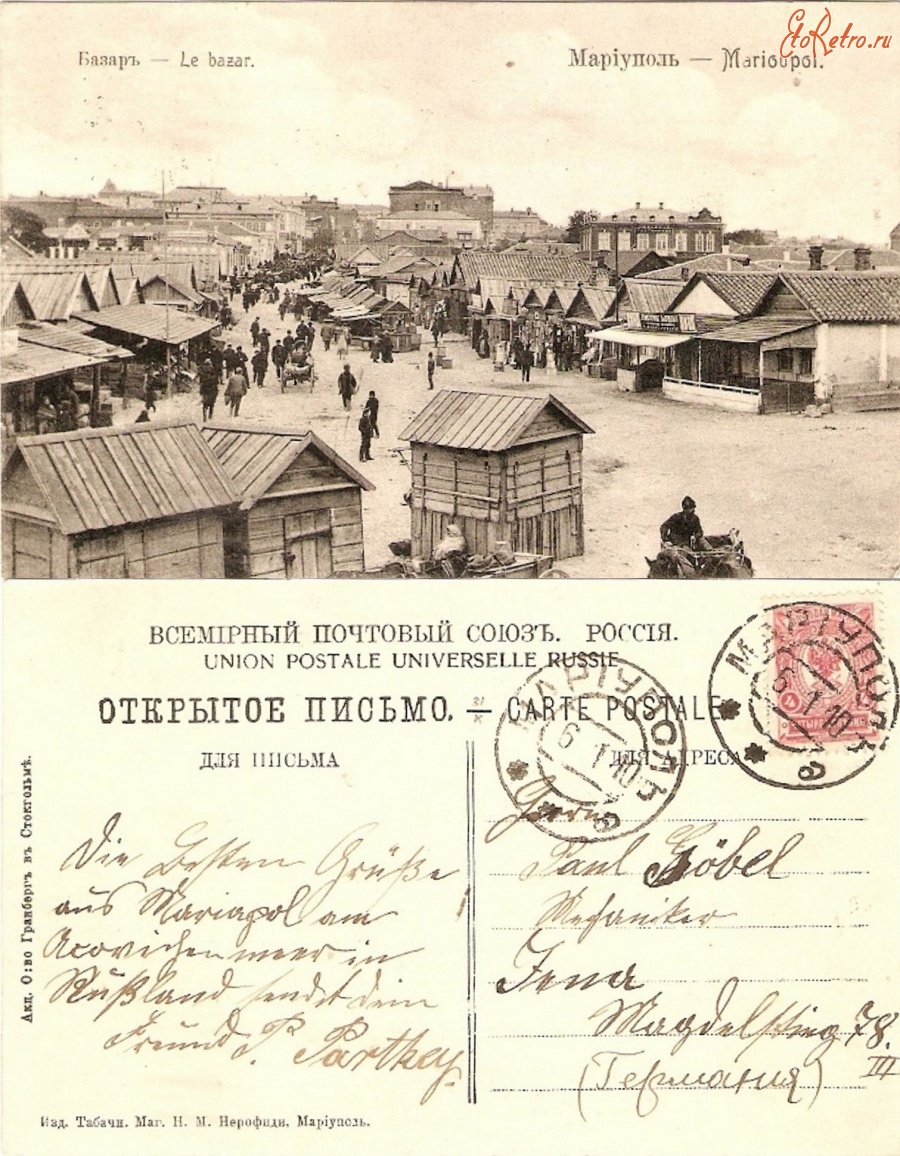 EtoRetro.ru
Базаръ — Le bazar.
Маріуполь — Marioupol.
ВСЕМІРНЫЙ ПОЧТОВЫЙ СОЮЗЪ. РОССІЯ.
UNION POSTALE UNIVERSELLE RUSSIE
ОТКРЫТОЕ ПИСЬМО. — CARTE POSTALE
ДЛЯ ПИСЬМА
ДЛЯ АДРЕСА
МАРІУПОЛЬ
6 1 10
МАРІУПОЛЬ
6 1 10
Die Besten Grüße
aus Mariapol am
Acovichen meer in
Rußland sendet dein
Freund P. Parthey
Herrn
Paul Göbel
Mechaniker
Jena
Magdelstieg 78.
III
(Германия)
Акц. О:во Гранбергъ въ Стокгольмѣ.
Изд. Табачн. Маг. Н. М. Нерофиди, Маріуполь.